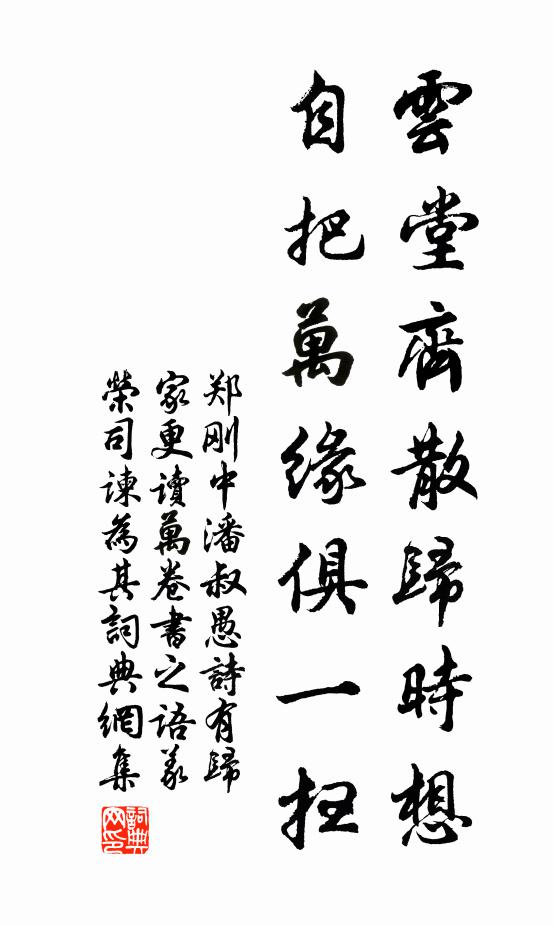 雲堂齊散歸時想
自把萬緣俱一抂
郑刚中潘叔愚詩有歸
家更讀萬卷書之語義
榮司諫為其詞典網集
詞典网印